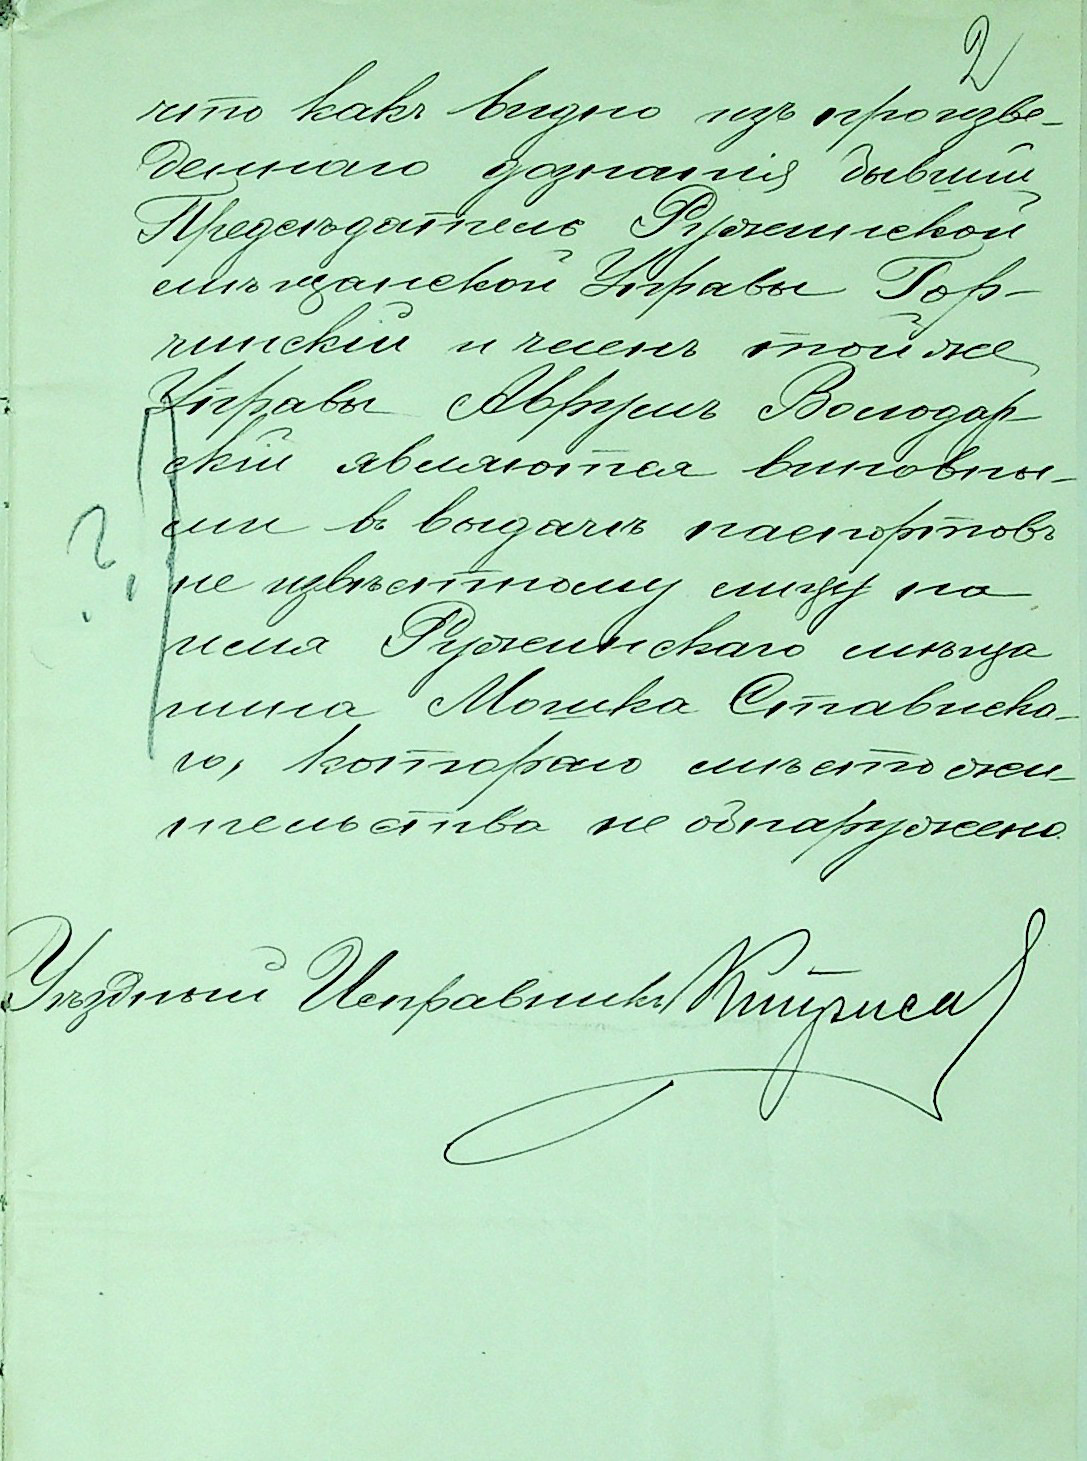 2
что какъ видно изъ произве-
деннаго дознанія бывшій
Предсѣдатель Ружинской
мѣщанской Управы Гор-
чинскій и членъ той же
Управы Аврумъ Володар-
скій являются виновны-
ми въ выдачѣ паспортовъ
не извѣстному лицу на
имя Ружинскаго мѣща
нина Мошка Стависка-
го, котораго мѣсто жи-
тельства не обнаружено.
?
Уѣздный Исправникъ